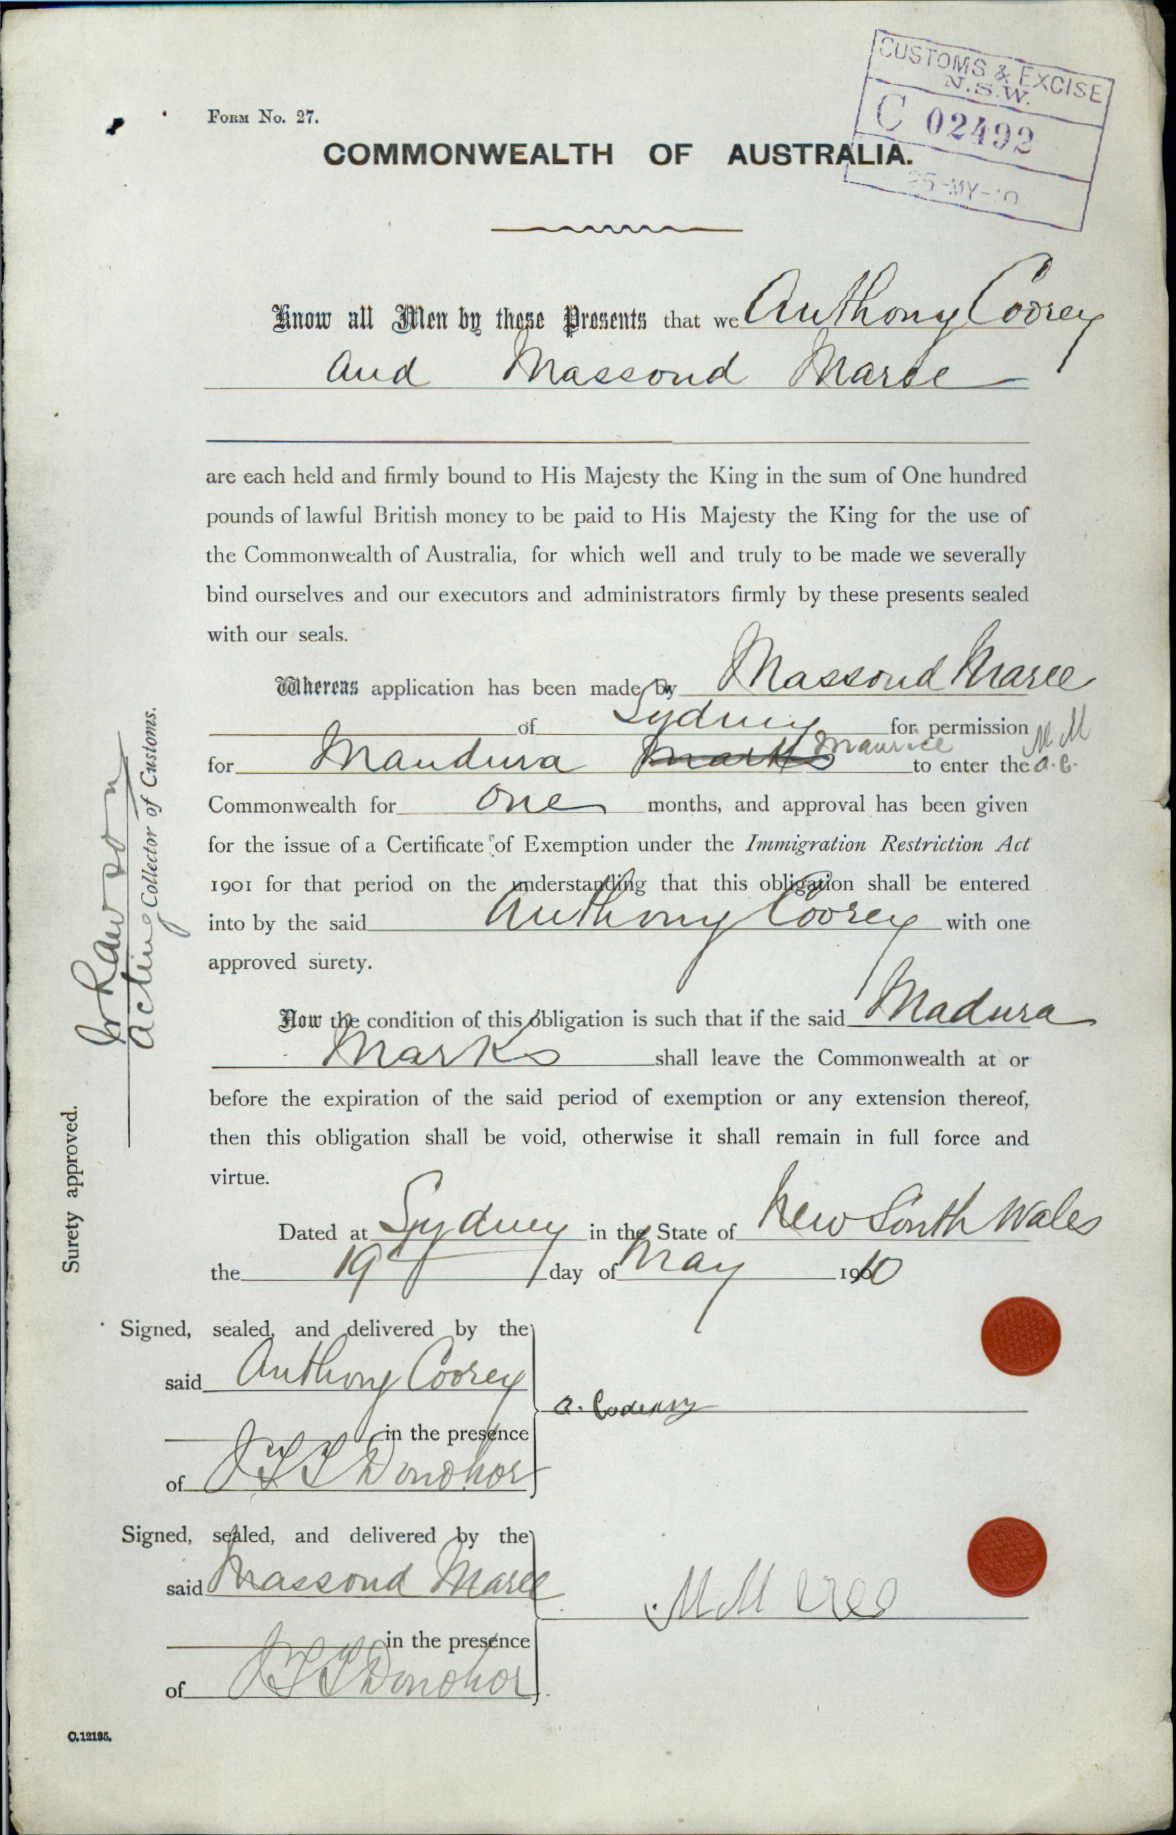 CUSTOMS & EXCISE
N.S.W.
C 02492
25-MY-10
FORM No. 27.
COMMONWEALTH OF AUSTRALIA.
Know all Men by these Presents that we Anthony Coorey
and Massoud Maree
are each held and firmly bound to His Majesty the King in the sum of One hundred
pounds of lawful British money to be paid to His Majesty the King for the use of
the Commonwealth of Australia, for which well and truly to be made we severally
bind ourselves and our executors and administrators firmly by these presents sealed
with our seals.
Whereas application has been made by Massoud Maree
of Sydney for permission
for Mandura Marks Maurice to enter the M M A. C.
Commonwealth for one months, and approval has been given
for the issue of a Certificate of Exemption under the Immigration Restriction Act
1901 for that period on the understanding that this obligation shall be entered
into by the said Anthony Coorey with one
approved surety.
Now the condition of this obligation is such that if the said Madura
Marks shall leave the Commonwealth at or
before the expiration of the said period of exemption or any extension thereof,
then this obligation shall be void, otherwise it shall remain in full force and
virtue.
Dated at Sydney in the State of New South Wales
the 19 day of May 1910
Signed, sealed, and delivered by the
said Anthony Coorey
in the presence
of Donohoe
Signed, sealed, and delivered by the
said Massoud Maree
in the presence
of Donohoe
Surety approved.
Rawson
Acting Collector of Customs.
C.12195.